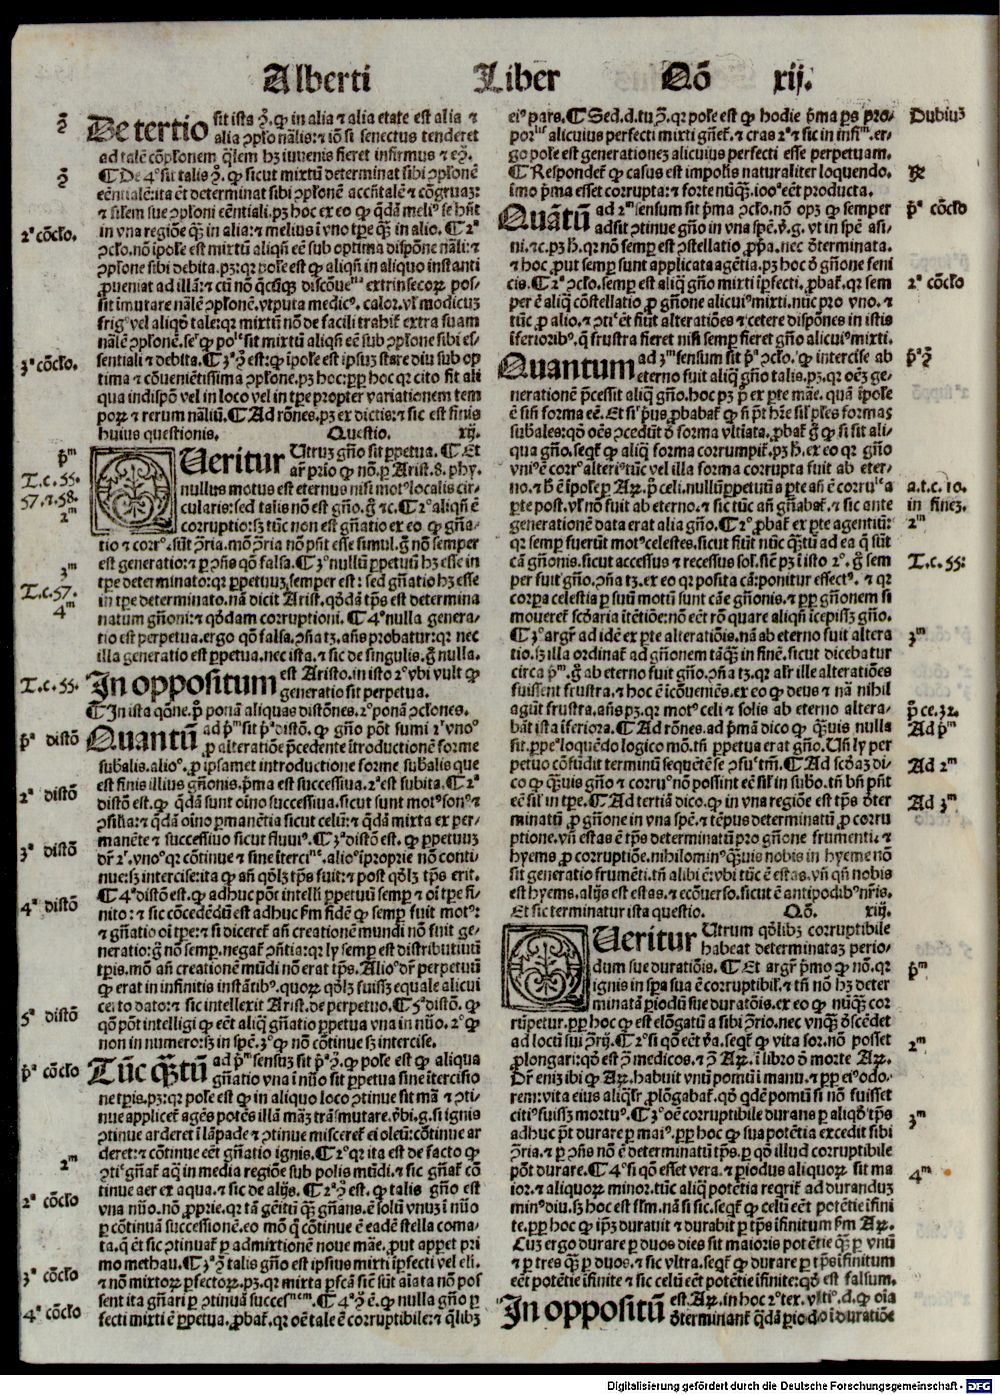 Alberti Liber Qō xij.
De tertio sit ista ꝯ̄. ꝙ in alia ⁊ alia etate est alia ⁊
alia ꝯplo nālis: ⁊ iō si senectus tenderet
ad talē cōplonem q̄lem hꝫ iuuenis fieret infirmus ⁊ eꝯ̄.
¶ De 4º sit talis ꝯ̄. ꝙ sicut mixtū determinat sibi ꝯplonē
eēntialē: ita et̄ determinat sibi ꝯplonē accn̄talē ⁊ cōgruaꝫ:
⁊ silem sue ꝯploni eēntiali. pꝫ hoc ex eo ꝙ q̄dā meliꝰ se hn̄t
in vna regiōe qꝫ in alia: ⁊ melius ī vno tp̄e qꝫ in alio. ¶ 2ª
ꝯclo. nō īpole est mixtū aliqn̄ eē sub optima dispōne nāli: ⁊
ꝯplone sibi debita. pꝫ: qꝛ pole est ꝙ aliqn̄ in aliquo instanti
ꝓueniat ad illā: ⁊ cū nō extrinsecoꝝ pos-
sit īmutare nālē ꝯplonē. vtputa medicꝰ. calor. vl̄ modicuꝫ
frigꝰ vel aliqd̄ tale: qꝛ mixtū nō de facili trahit̄ extra suam
nālē ꝯplonē. seqꝰ ꝙ sit mixtū aliqn̄ eē sub ꝯplone sibi es-
sentiali ⁊ debita. ¶ 3ª ꝯ̄ est: ꝙ īpole est ipsuꝫ stare diu sub op
tima ⁊ cōuenientissima ꝯplone. pꝫ hoc: pꝑ hoc qꝛ cito fit ali
qua indispō vel in loco vel in tp̄e propter variationem tem
poꝝ ⁊ rerum nāliū. ¶ Ad rōnes. pꝫ ex dictis: ⁊ sic est finis
huius questionis. Questio. xij.
Ueritur Utruꝫ gn̄o sit ꝑpetua. ¶ Et
ar̄ prio ꝙ nō. ꝑ Arist. 8. phy.
nullus motus est eternus nisi motꝰ localis cir-
cularis: sed talis nō est gn̄o. g̊ ⁊c. ¶ 2º aliqn̄ ē
corruptio: sꝫ tūc non est gn̄atio ex eo ꝙ gn̄a-
tio ⁊ corrº. sūt ꝯ̄ria. mō ꝯ̄ria nō pn̄t esse simul. g̊ nō semper
est generatio: ⁊ ꝑ ꝯn̄s qō falsa. ¶ 3º nullū ꝑpetuū hꝫ esse in
tp̄e determinato: qꝛ ꝑpetuuꝫ semper est: sed gn̄atio hꝫ esse
in tp̄e determinato. nā dicit Arist. qōdā tp̄s est determina
natum gn̄oni: ⁊ qōdam corruptioni. ¶ 4º nulla genera-
tio est ꝑpetua. ergo qō falsa. ꝯn̄a tꝫ. an̄s probatur: qꝛ nec
illa generatio est ꝑpetua. nec ista. ⁊ sic de singulis. g̊ nulla.
In oppositum est Aristo. in isto 2º vbi vult ꝙ
generatio sit perpetua.
¶ In ista qōne. pº ponā aliquas distōnes. 2º ponā ꝯclones.
Quantū ad pᵐ sit pª distō. ꝙ gn̄o pōt sumi 2ʳ vnoº
ꝓ alteratiōe p̄cedente ītroductionē forme
sub̄alis. alioº. ꝓ ipsamet introductione forme sub̄alis que
est finis illius gn̄onis. pma est successiua. 2ª est subita. ¶ 2ª
distō est. ꝙ q̄dā sunt oīno successiua. sicut sunt motꝰ sonꝰ ⁊
ꝯsilia: ⁊ q̄dā oīno ꝑmanētia sicut celū: ⁊ q̄dā mixta ex ꝑ-
manēte ⁊ successiuo sicut fluuiꝰ. ¶ 3ª distō est. ꝙ ꝑpetuuꝫ
dr̄ 2ʳ. vnoº qꝛ cōtinue ⁊ sine īterciⁿᵉ. alioº īproprie nō conti-
nue: sꝫ intercise: ita ꝙ an̄ qōlꝫ tp̄s fuit: ⁊ post qōlꝫ tp̄s erit.
¶ 4ª distō est. ꝙ adhuc pōt intelli ꝑpetuū semꝑ ⁊ oī tp̄e fi-
nito: ⁊ sic cōcedēdū est adhuc ẜm fidē ꝙ semꝑ fuit motꝰ:
⁊ gn̄atio oī tp̄e: ⁊ si diceret̄ an̄ creationē mundi nō fuit ge-
neratio: g̊ nō semꝑ. negat̄ ꝯn̄tia: qꝛ ly semꝑ est distributiuū
tp̄ris. mō an̄ creationē mūdi nō erat tp̄s. Alioº dr̄ perpetuū
ꝙ erat in infinitis instātibꝰ. quoꝝ qōlꝫ fuisꝫ equale alicui
certo dato: ⁊ sic intellexit Arist. de perpetuo. ¶ 5ª distō. ꝙ
qō pōt intelligi ꝙ eēt aliq̄ gn̄atio ꝑpetua vna in nūo. 2º ꝙ
non in numero: sꝫ in spē. 3º ꝙ nō cōtinue sꝫ intercise.
Tūc qꝫtū ad pᵐ sensuꝫ sit pª ꝯ̄. ꝙ pole est ꝙ aliqua
gn̄atio vna ī nūo sit ꝑpetua sine ītercisio
ne tp̄ris. pꝫ: qꝛ pole est ꝙ in aliquo loco ꝯtinue sit mā ⁊ ꝯti-
nue applicet̄ agēs potēs illā māꝫ trāsmutare. v̄bi. g. si ignis
ꝯtinue arderet ī lāpade ⁊ ꝯtinue misceret̄ ei oleū: cōtinue ar
deret: ⁊ cōtinue eēt gn̄atio ignis. ¶ 2º qꝛ ita est de facto ꝙ
ꝯtiᵉ gn̄at̄ aq̄ in media regiōe sub polis mūdi. ⁊ sic gn̄at̄ cō
tinue aer ex aqua. ⁊ sic de alijs. ¶ 2ª ꝯ̄ est. ꝙ talis gn̄o est
vna nūo. nō ꝓprie. qꝛ tā gēitū qꝫ gn̄ans. ē solū vnuꝫ ī nūo
ꝑ cōtinuā successionē. eo mō q̊ cōtinue ē eadē stella coma-
ta. q̄ et̄ sic ꝯtinuat̄ ꝑ admixtionē noue māe. ꝓut appet pri
mo methau. ¶ 3ª ꝯ̄ talis gn̄o est ipsius mixti īꝑfecti vel eli.
⁊ nō mixtoꝝ ꝑfectoꝝ. pꝫ. qꝛ mixta ꝑfcā sic̄ sūt aīata nō pos
sent ita gn̄ari ꝑ ꝯtinuā succesⁿᵉᵐ. ¶ 4ª ꝯ̄ ē. ꝙ nulla gn̄o ꝑ
fecti mixti ē ꝑpetua. ꝓbat̄. qꝛ oē tale ē corruptibile: ⁊ q̄libꝫ
eiꝰ pars. ¶ Sꝫ. d. tu ꝯ̄. qꝛ pole est ꝙ hodie pma ps pro-
alicuius perfecti mixti gn̄et̄. ⁊ cras 2ª ⁊ sic in infiᵐ. er-
go pole est generationeꝫ alicuius perfecti esse perpetuam.
¶ Respondet̄ ꝙ casus est impolis naturaliter loquendo.
īmo pma esset corrupta: ⁊ forte nūqꝫ. 100ª eēt producta.
Quātū ad 2ᵐ sensum sit pma ꝯclo. nō opꝫ ꝙ semper
adsit ꝯtinue gn̄o in vna spē. v̄. g. vt in spē asi-
ni. ⁊c. pꝫ h̄. qꝛ nō semꝑ est ꝯstellatio ꝓpria. nec d̄terminata.
⁊ hoc ꝓut semꝑ sunt applicata agētia. pꝫ hoc d̄ gn̄one feni
cis. ¶ 2ª ꝯclo. semꝑ est aliq̄ gn̄o mixti īꝑfecti. ꝓbat̄. qꝛ sem
per ē aliq̄ cōstellatio ꝓ gn̄one alicuiꝰ mixti. nūc pro vno. ⁊
tūc ꝓ alio. ⁊ ꝯtiᵉ et̄ fiūt alteratiōes ⁊ cetere dispōnes in istis
īferioribꝰ. q̄ frustra fieret nisi semꝑ fieret gn̄o alicuiꝰ mixti.
Quantum ad 3ᵐ sensum sit pª ꝯclo. ꝙ intercise ab
eterno fuit aliq̄ gn̄o talis. pꝫ. qꝛ oēꝫ ge-
nerationē p̄cessit aliq̄ gn̄o. hoc pꝫ pº ex pte māe. qua īpole
ē sin̄ forma eē. Et si pꝰus ꝓbabat̄ ꝙ n̄ pn̄t hr̄e sil̄ pl̄es formas
sub̄ales: qō oēs ꝯcedūt d̄ forma vltiata. ꝓbat̄ g̊ ꝙ si sit ali-
qua gn̄o. seqt̄ ꝙ aliq̄ forma corrumpit̄. pꝫ h̄. ex eo qꝛ gn̄o
vniꝰ ē corrº alteriꝰ: tūc vel illa forma corrupta fuit ab eter-
no. ⁊ h̄ ē īpole ꝑ Aꝝ. pº celi. nullū ꝑpetuū a pte an̄ ē corruˡᵉ a
pte post. vl̄ nō fuit ab eterno. ⁊ sic tūc an̄ gn̄abat̄. ⁊ sic ante
generationē data erat alia gn̄o. ¶ 2º ꝓbat̄ ex pte agentiū:
qꝛ semper fuerūt motꝰ celestes. sicut fiūt nūc qꝫtū ad ea q̄ sūt
cā gn̄onis. sicut accessus ⁊ recessus sol̄. sic̄ pꝫ ī isto 2º. g̊ sem
per fuit gn̄o. ꝯn̄a tꝫ. ex eo qꝛ posita cā: ponitur effectꝰ. ⁊ qꝛ
corpa celestia ꝑ suū motū sunt cāe gn̄onis. ⁊ pꝑ gn̄onem si
mouerēt̄ scd̄aria ītētiōe: nō eēt rō quare aliqn̄ īcepissꝫ gn̄o.
¶ 3º argr̄ ad idē ex pte alteratiōis. nā ab eterno fuit altera
tio. sꝫ illa ordinat̄ ad gn̄onem tāqꝫ in finē. sicut dicebatur
circa pᵐ. g̊ ab eterno fuit gn̄o. ꝯn̄a tꝫ. qꝛ al̄r ille alteratiōes
fuissent frustra. ⁊ hoc ē īcōueniēs. ex eo ꝙ deus ⁊ nā nihil
agūt frustra. an̄s pꝫ. qꝛ motꝰ celi ⁊ solis ab eterno altera-
bāt ista īferiora. ¶ Ad rōnes. ad pmā dico ꝙ qꝫuis nulla
sit. ꝑpeª loquēdo logico mō. tn̄ ꝑpetua erat gn̄o. Un̄ ly per
petuo cōfūdit terminū sequētē se ꝯfuᵉ tm̄. ¶ Ad scd̄aꝫ di-
co ꝙ qꝫuis gn̄o ⁊ corruº nō possint eē sil̄ in sub̄o. tn̄ bn̄ pn̄t
eē sil̄ in tp̄e. ¶ Ad tertiā dico. ꝙ in vna regiōe est tp̄s d̄ter
minatū ꝓ gn̄one in vna spē. ⁊ tēpus determinatū ꝓ corru
ptione. vn̄ estas ē tp̄s determinatū pro gn̄one frumenti. ⁊
hyems ꝓ corruptiōe. nihilominꝰ qꝫuis nobis in hyeme nō
sit generatio frumēti. tn̄ alibi ē: vbi tūc ē estas. vn̄ qn̄ nobis
est hyems. alijs est estas. ⁊ ecōuerso. sicut ē antipodibꝰ nr̄is.
Et sic terminatur ista questio. Qō. xiij.
Ueritur Utrum qōlibꝫ corruptibile
habeat determinataꝫ perio-
dum sue durationis. ¶ Et argr̄ pmo ꝙ nō. qꝛ
ignis in spa sua ē corruptibil̄. ⁊ tn̄ nō hꝫ deter
minatā piodū sue duratōis. ex eo ꝙ nūqꝫ cor
rūpetur. pꝑ hoc ꝙ est elōgatū a sibi ꝯ̄rio. nec vnqꝫ d̄scēdet
ad locū sui ꝯ̄rij. ¶ 2º si qō eēt v̄a. seqt̄ ꝙ vita for. nō posset
ꝓlongari: qō est ꝯ̄ medicos. ⁊ ꝯ̄ Aꝝ. ī libro d̄ morte Aꝝ.
Dr̄ eniꝫ ibi ꝙ Aꝝ. habuit vnū pomū ī manu. ⁊ pꝑ eiꝰ odo-
rem: vita eius aliqͣl̄r ꝓlōgabat̄. qō qdē pomū si nō fuisset
citiꝰ fuisꝫ mortuꝰ. ¶ 3º oē corruptibile durans ꝑ aliqd̄ tp̄s
adhuc pt̄ durare ꝑ maiꝰ. pꝑ hoc ꝙ sua potētia excedit sibi
ꝯ̄ria. ⁊ ꝑ ꝯn̄s nō ē determinatū tp̄s. ꝑ qō illud corruptibile
pōt durare. ¶ 4º si qō esset vera. ⁊ ꝑiodus aliquoꝝ sit ma
ior. ⁊ aliquoꝝ minor. tūc aliq̄ potētia reqrit̄ ad duranduꝫ
minꝰ diu. sꝫ hoc est flm̄. nā si sic. seqt̄ ꝙ celū eēt potētie īfini
te. pꝑ hoc ꝙ ipꝫ durauit ⁊ durabit ꝑ tp̄s īfinitum ẜm Aꝝ.
Cuꝫ ergo durare ꝑ duos dies sit maioris potētie qꝫ ꝑ vnū
⁊ ꝑ tres qꝫ ꝑ duos. ⁊ sic vltra. seqt̄ ꝙ durare ꝑ tp̄s īfinitum
eēt potētie īfinite ⁊ sic celū eēt potētie īfinite: qō est falsum.
In oppositū est. Aꝝ. in hoc 2º tex. vltiᵒ. d. ꝙ oīa
d̄terminant̄ q̄dā ꝑiodo ī duratiōe
2ª cōclo.
3ª cōclo.
pᵐ
T. c. 55.
57. ⁊. 58.
2ᵐ
3ᵐ
T. c. 57.
4ᵐ
T. c. 55.
pª distō
2ª distō
3ª distō
4ª distō
5ª distō
pª cōclo
2ᵐ
2ª cōclo
3ª cōclo
4ª cōclo
Dubiuꝫ
pª cōclo
2ª cōclo
pª ꝯ̄
a. t. c. 10.
in fineꝫ.
2ᵐ
T. c. 55:
3ᵐ
p̄ ce. 32.
Ad pᵐ
Ad 2ᵐ
Ad 3ᵐ
pᵐ
2ᵐ
3ᵐ
4ᵐ
Digitalisierung gefördert durch die Deutsche Forschungsgemeinschaft - DFG